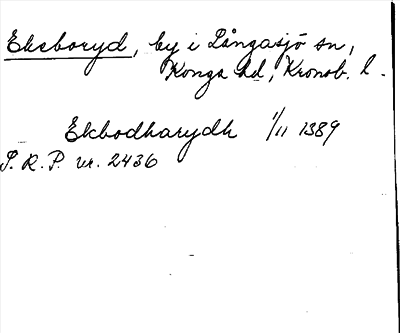 Ekeboryd, by i Långasjö sn,
Konga hd, Kronob. l.
Ekbodharydh 1/11 1389
S. R. P. nr. 2436